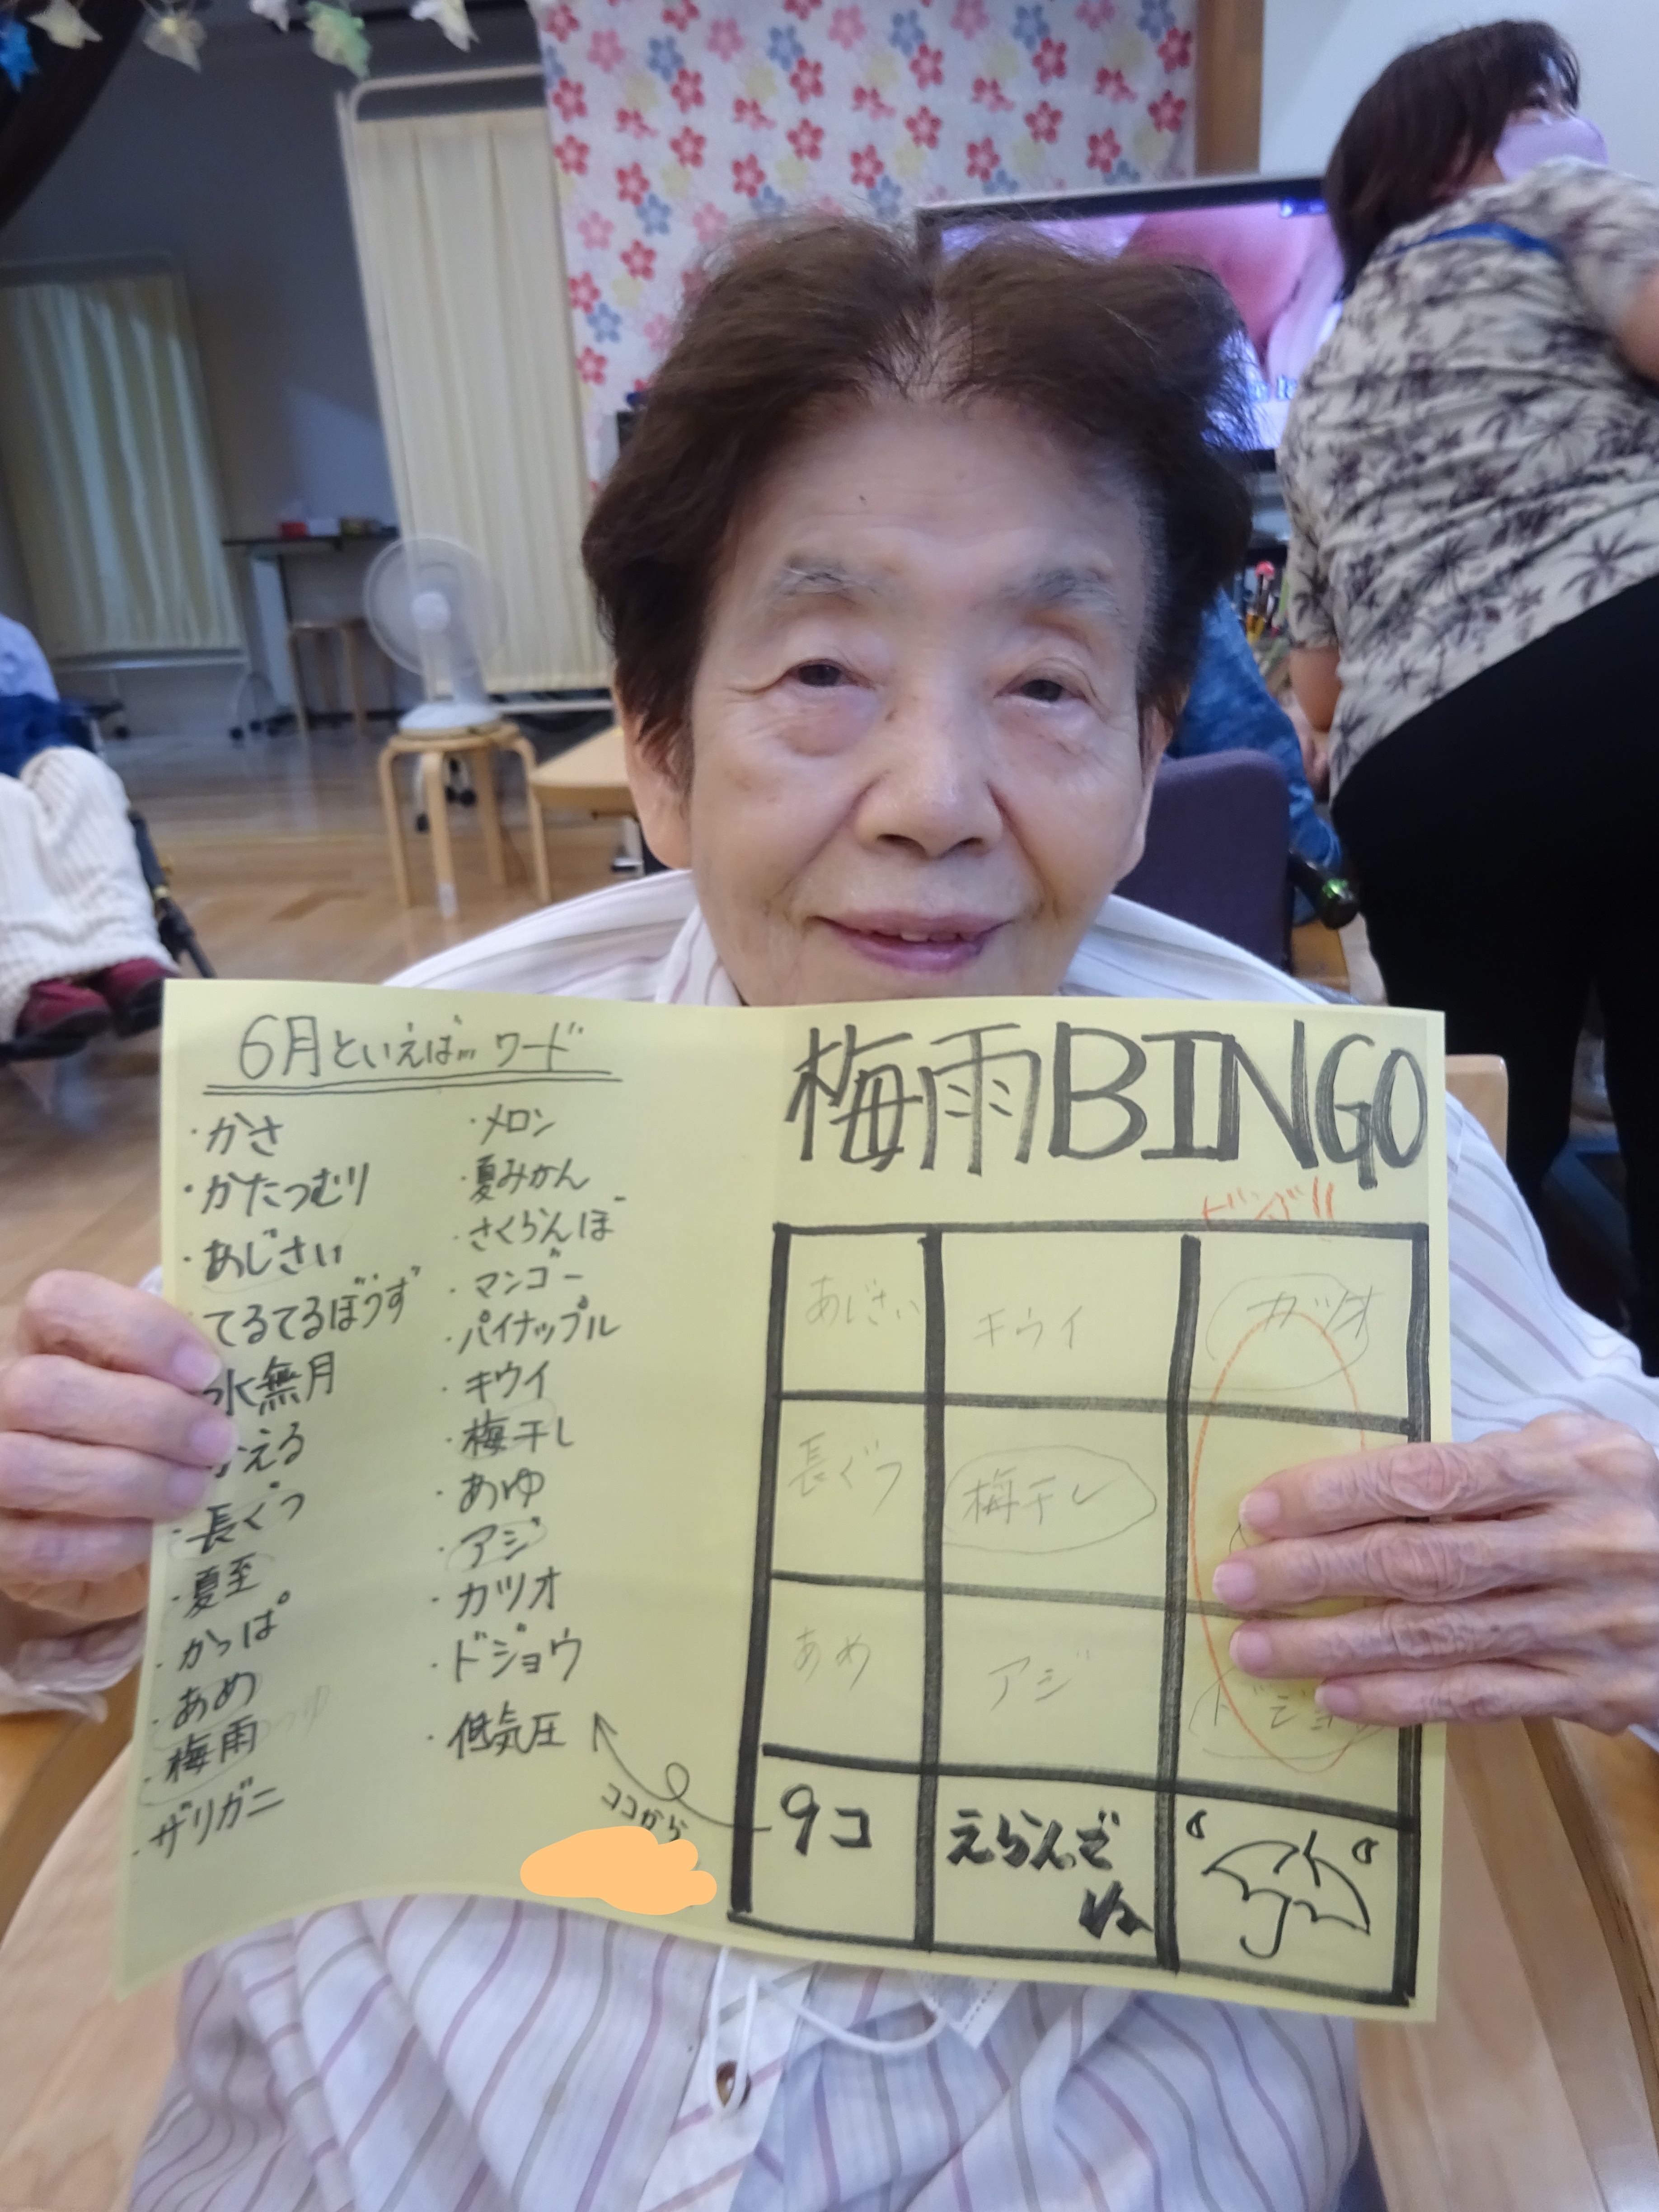 6月といえば… ワード
・かさ
・かたつむり
・あじさい
・てるてるぼうず
水無月
える
・長ぐつ
・夏至
・かっぱ
・あめ
・梅雨 つゆ
・ザリガニ
・メロン
・夏みかん
・さくらんぼ
・マンゴー
・パイナップル
・キウイ
・梅干し
・あゆ
・アジ
・カツオ
・ドジョウ
・低気圧
ココから
梅雨BINGO
あじさい キウイ カツオ
長ぐつ 梅干し
あめ アジ ドジョ
9コ えらんで
ね